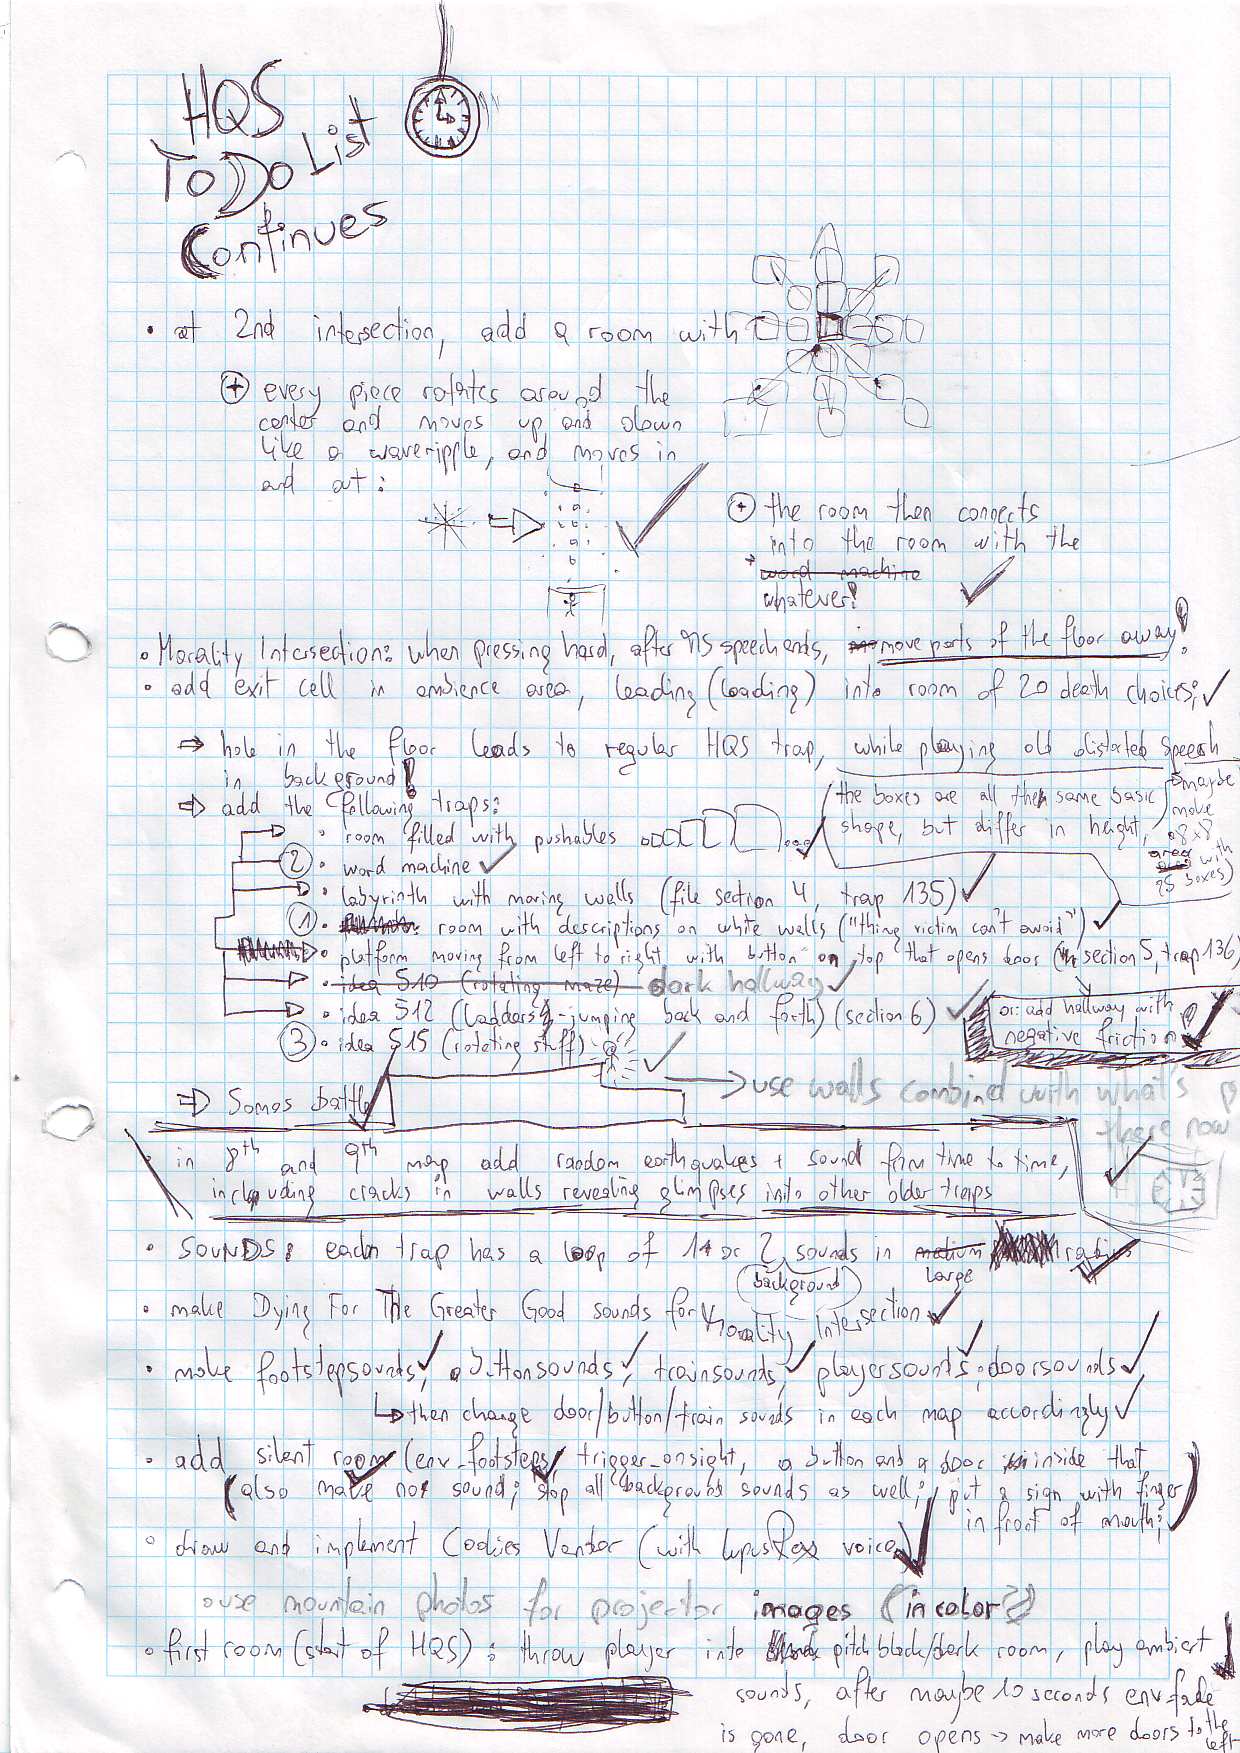 HQS
To Do List
Continues
• at 2nd intersection, add a room with
+ every piece rotates around the
center and moves up and down
like a waveripple, and moves in
and out:
+ the room then connects
into the room with the
word machine
whatever!
• Morality Intersection: when pressing hard, after speech ends, move parts of the floor away!
• add exit cell in ambience area, leading (loading) into room of 20 death choices;
⇒ hole in the floor leads to regular HQS trap, while playing old distorted speech
in background!
⇒ add the following traps:
• room filled with pushables
(the boxes are all the same basic
shape, but differ in height,
maybe
make
a 8x8
area
with
25 boxes)
2 • word machine
• labyrinth with moving walls (file section 4, trap 135)
1 • room with descriptions on white walls ("thing victim can't avoid")
• platform moving from left to right with button on top that opens door (section 5, trap 136)
• idea 510 (rotating maze) dark hallway
• idea 512 (ladders-jumping back and forth) (section 6)
or: add hallway with
negative friction
3 • idea 515 (rotating stuff)
→ use walls combined with what's
there now
⇒ Somos battle
• in 8th and 9th map add random earthquakes + sound from time to time,
including cracks in walls revealing glimpses into other older traps
• SOUNDS: each trap has a loop of 1 or 2 sounds in medium radius
(background) large
• make Dying For The Greater Good sounds for Morality Intersection
• make footstepsounds, buttonsounds, trainsounds, playersounds, doorsounds
↳ then change door/button/train sounds in each map accordingly
• add silent room (env_footsteps, trigger_onsight, a button and a door inside that
(also make no sound; stop all background sounds as well; put a sign with finger
in front of mouth;)
• draw and implement Cookies Vendor (with voice)
• use mountain photos for projector images (in color)
• first room (start of HQS): throw player into pitch black/dark room, play ambient
sounds, after maybe 10 seconds env_fade
is gone, door opens → make more doors to the
left